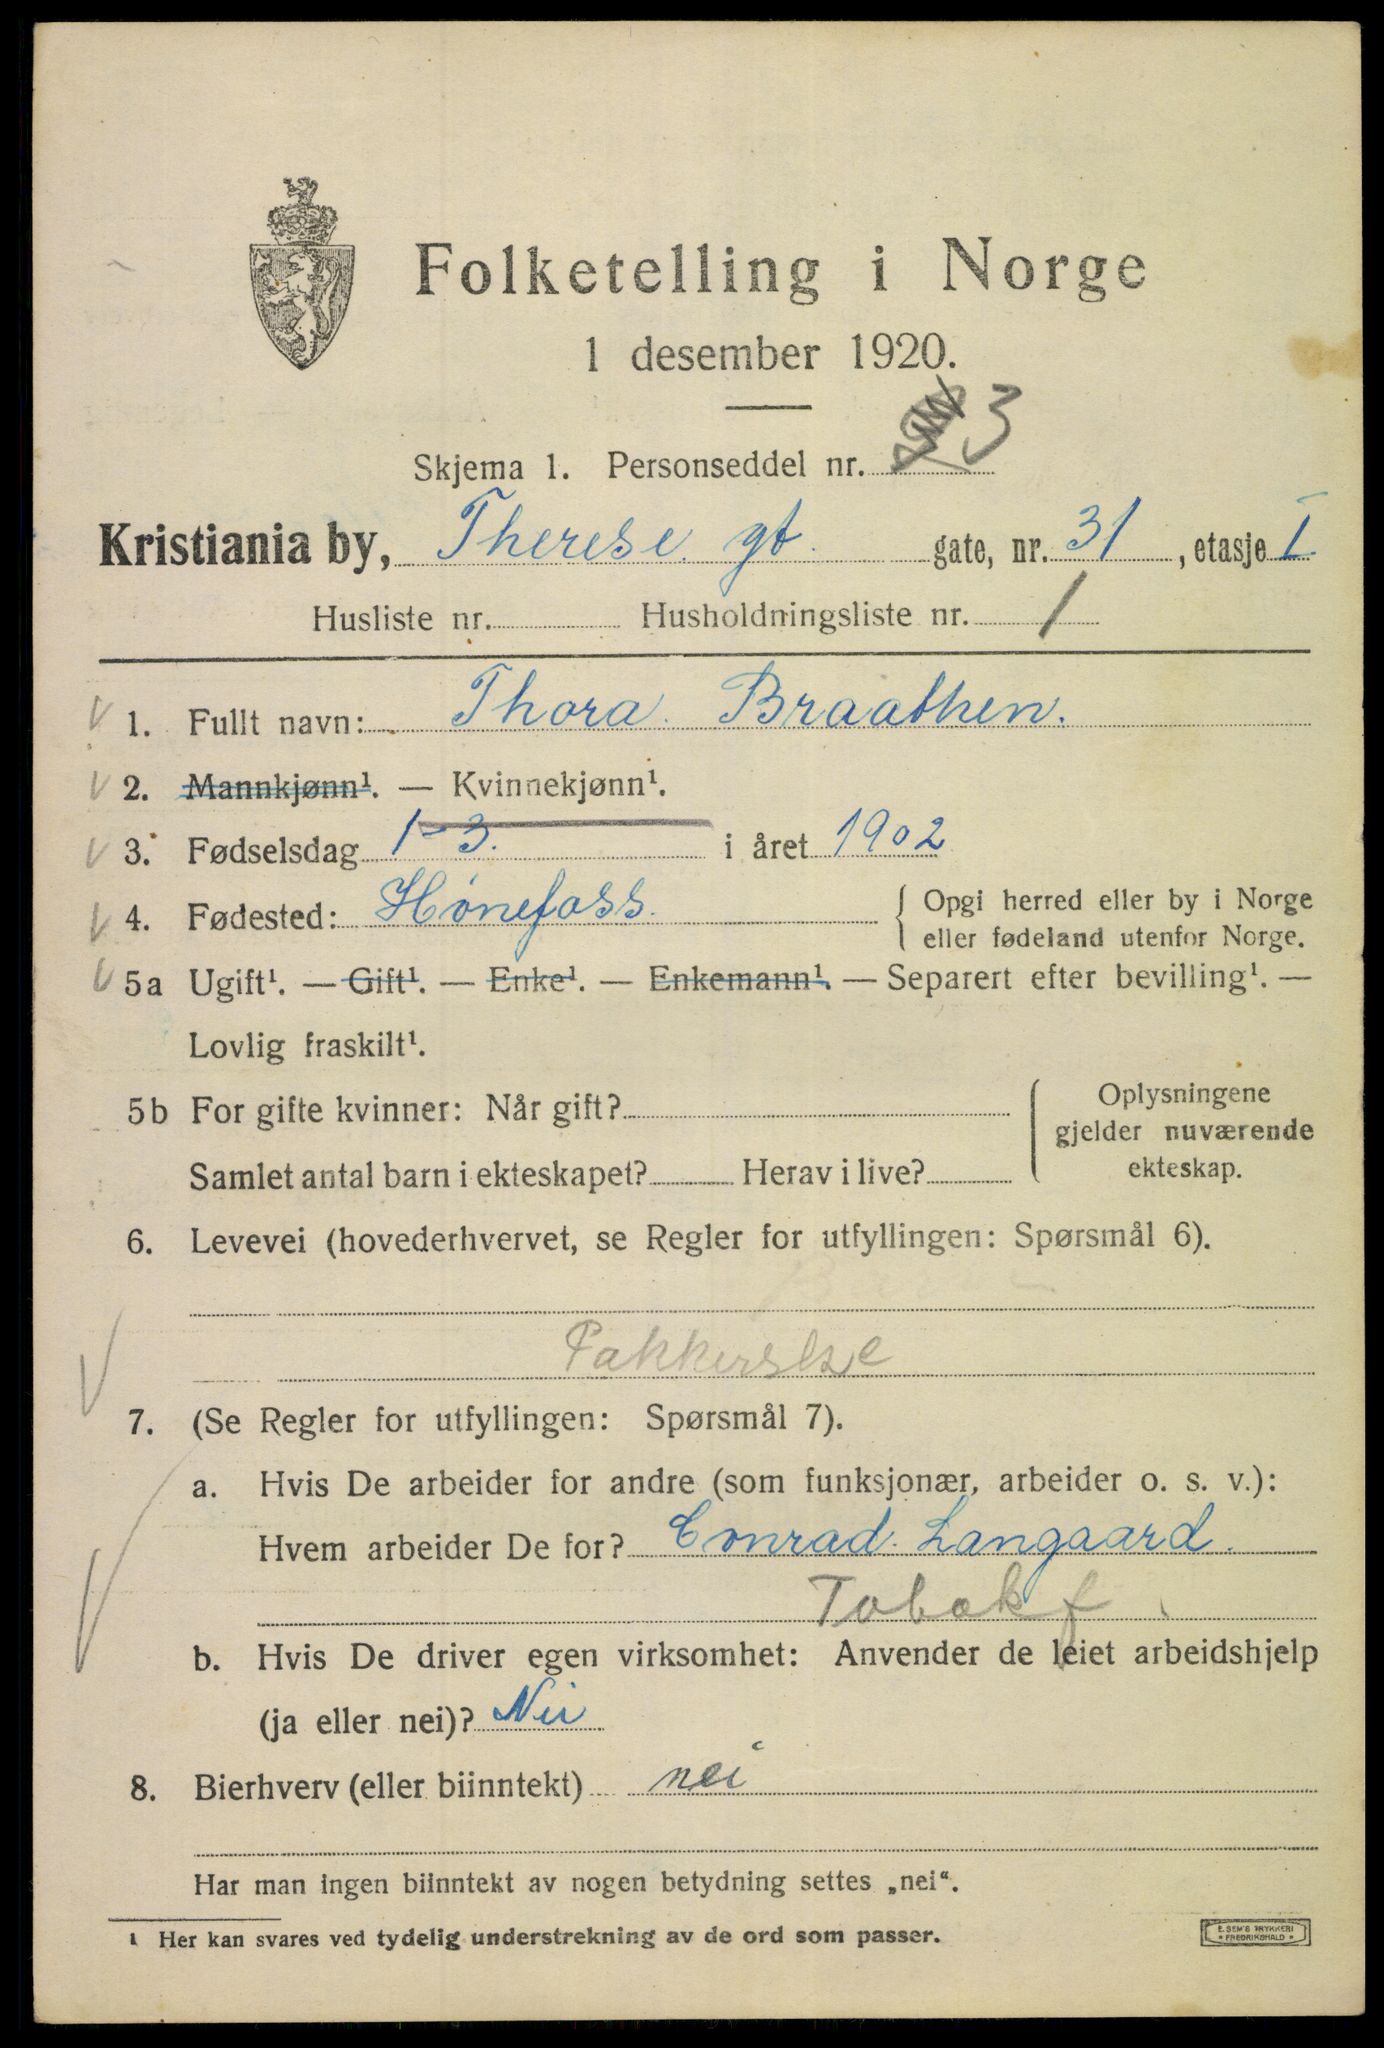 Folketelling i Norge
1 desember 1920.
Skjema 1. Personseddel nr. 3
Kristiania by, Therese gt. gate, nr. 31, etasje I
Husliste nr. Husholdningsliste nr. 1
1. Fullt navn: Thora Braathen.
2. Mannkjønn¹. — Kvinnekjønn¹.
3. Fødselsdag 1-3. i året 1902
4. Fødested: Hønefoss. Opgi herred eller by i Norge
eller fødeland utenfor Norge.
5a Ugift¹. — Gift¹. — Enke¹. — Enkemann¹. — Separert efter bevilling¹. —
Lovlig fraskilt¹.
5b For gifte kvinner: Når gift? Oplysningene
gjelder nuværende
Samlet antal barn i ekteskapet? Herav i live? ekteskap.
6. Levevei (hovederhvervet, se Regler for utfyllingen: Spørsmål 6).
Pakkerske
7. (Se Regler for utfyllingen: Spørsmål 7).
a. Hvis De arbeider for andre (som funksjonær, arbeider o. s. v.):
Hvem arbeider De for? Conrad Langaard.
Tobakf
b. Hvis De driver egen virksomhet: Anvender de leiet arbeidshjelp
(ja eller nei)? Nei
8. Bierhverv (eller biinntekt) nei
Har man ingen biinntekt av nogen betydning settes „nei“.
¹ Her kan svares ved tydelig understrekning av de ord som passer.
E. SEM'S TRYKKERI
* FREDRIKSHALD *